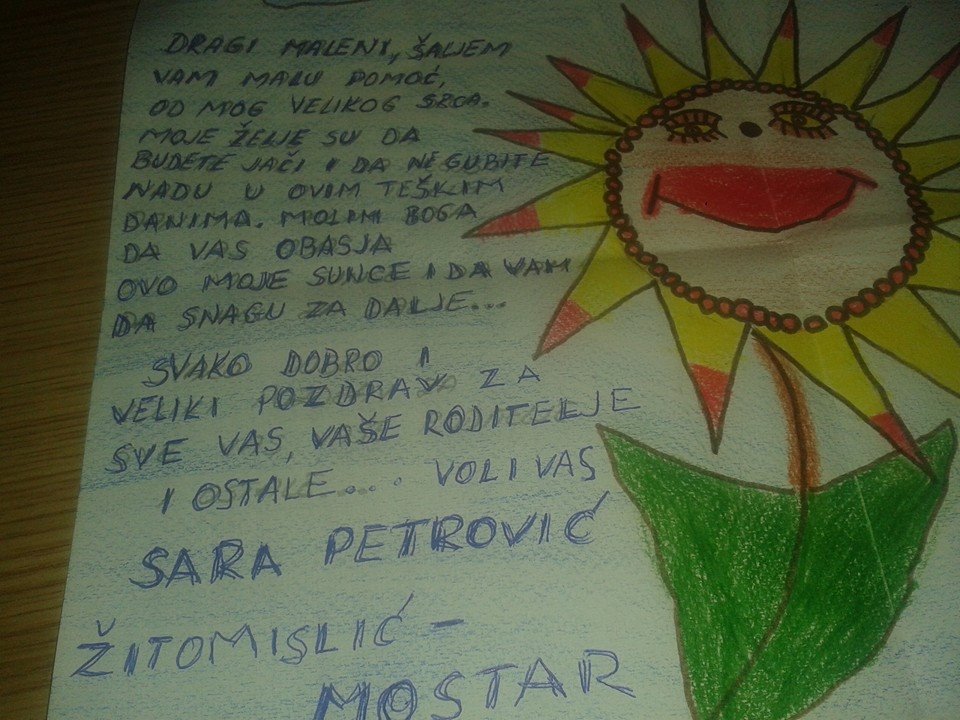 DRAGI MALENI, ŠALJEM
VAM MALU POMOĆ,
OD MOG VELIKOG SRCA.
MOJE ŽELJE SU DA
BUDETE JAČI I DA NE GUBITE
NADU U OVIM TEŠKIM
DANIMA. MOLIM BOGA
DA VAS OBASJA
OVO MOJE SUNCE I DA VAM
DA SNAGU ZA DALJE...
SVAKO DOBRO I
VELIKI POZDRAV ZA
SVE VAS, VAŠE RODITELJE
I OSTALE.... VOLI VAS
SARA PETROVIĆ
ŽITOMISLIĆ -
MOSTAR